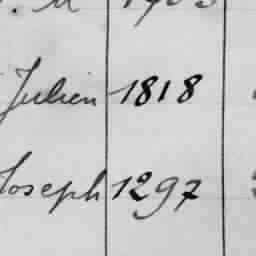 Julien 1818
Joseph 1297